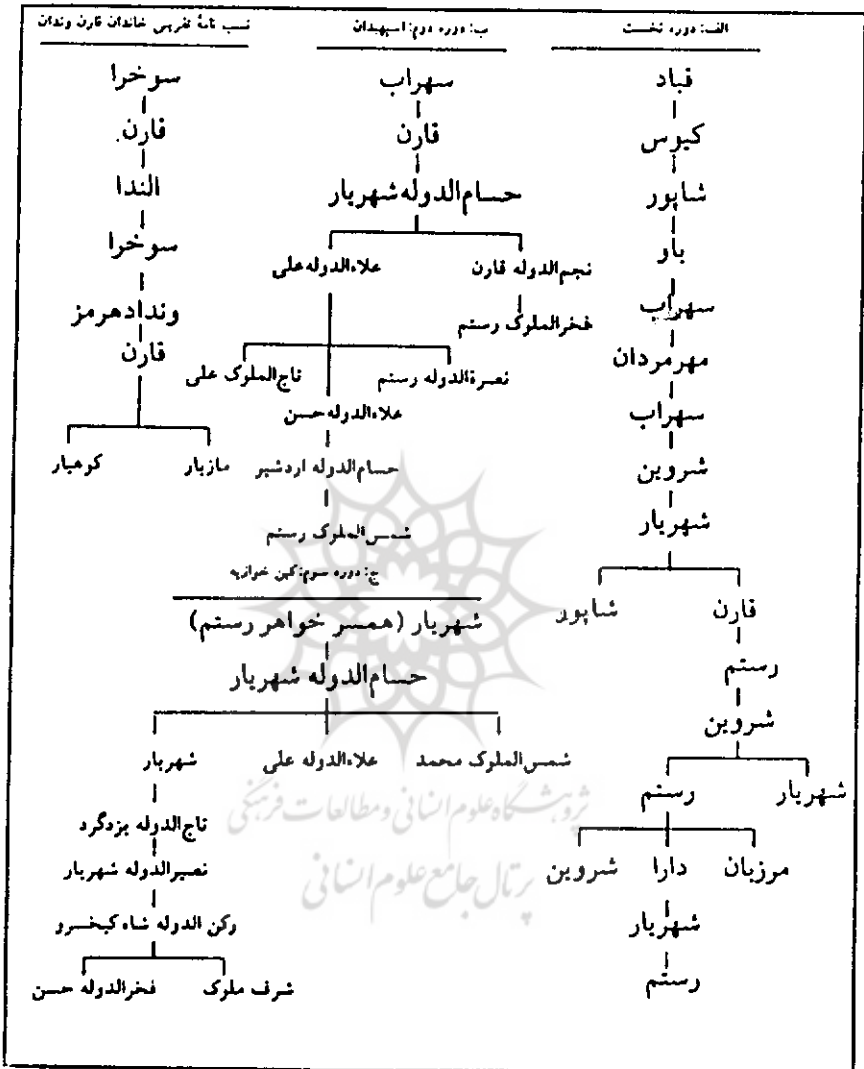 الف: دوره نخست
قباد
کیوس
شاپور
باو
سهراب
مهرمردان
سهراب
شروین
شهریار
قارن شاپور
رستم
شروین
شهریار رستم
مرزبان دارا شروین
شهریار
رستم
ب: دوره دوم: اسپهبدان
سهراب
قارن
حسام‌الدوله شهریار
نجم‌الدوله قارن علاءالدوله علی
فخرالملوک رستم
نصرةالدوله رستم تاج‌الملوک علی
علاءالدوله حسن
حسام‌الدوله اردشیر
شمس‌الملوک رستم
ج: دوره سوم: کین خوازیه
شهریار (همسر خواهر رستم)
حسام‌الدوله شهریار
شمس‌الملوک محمد علاءالدوله علی شهریار
تاج‌الدوله یزدگرد
نصیرالدوله شهریار
رکن الدوله شاه کیخسرو
شرف ملوک فخرالدوله حسن
نسب نامهٔ تقریبی خاندان قارن وندان
سوخرا
قارن
الندا
سوخرا
وندادهرمز
قارن
مازیار کوهیار
پژوهشگاه علوم انسانی و مطالعات فرهنگی
پرتال جامع علوم انسانی